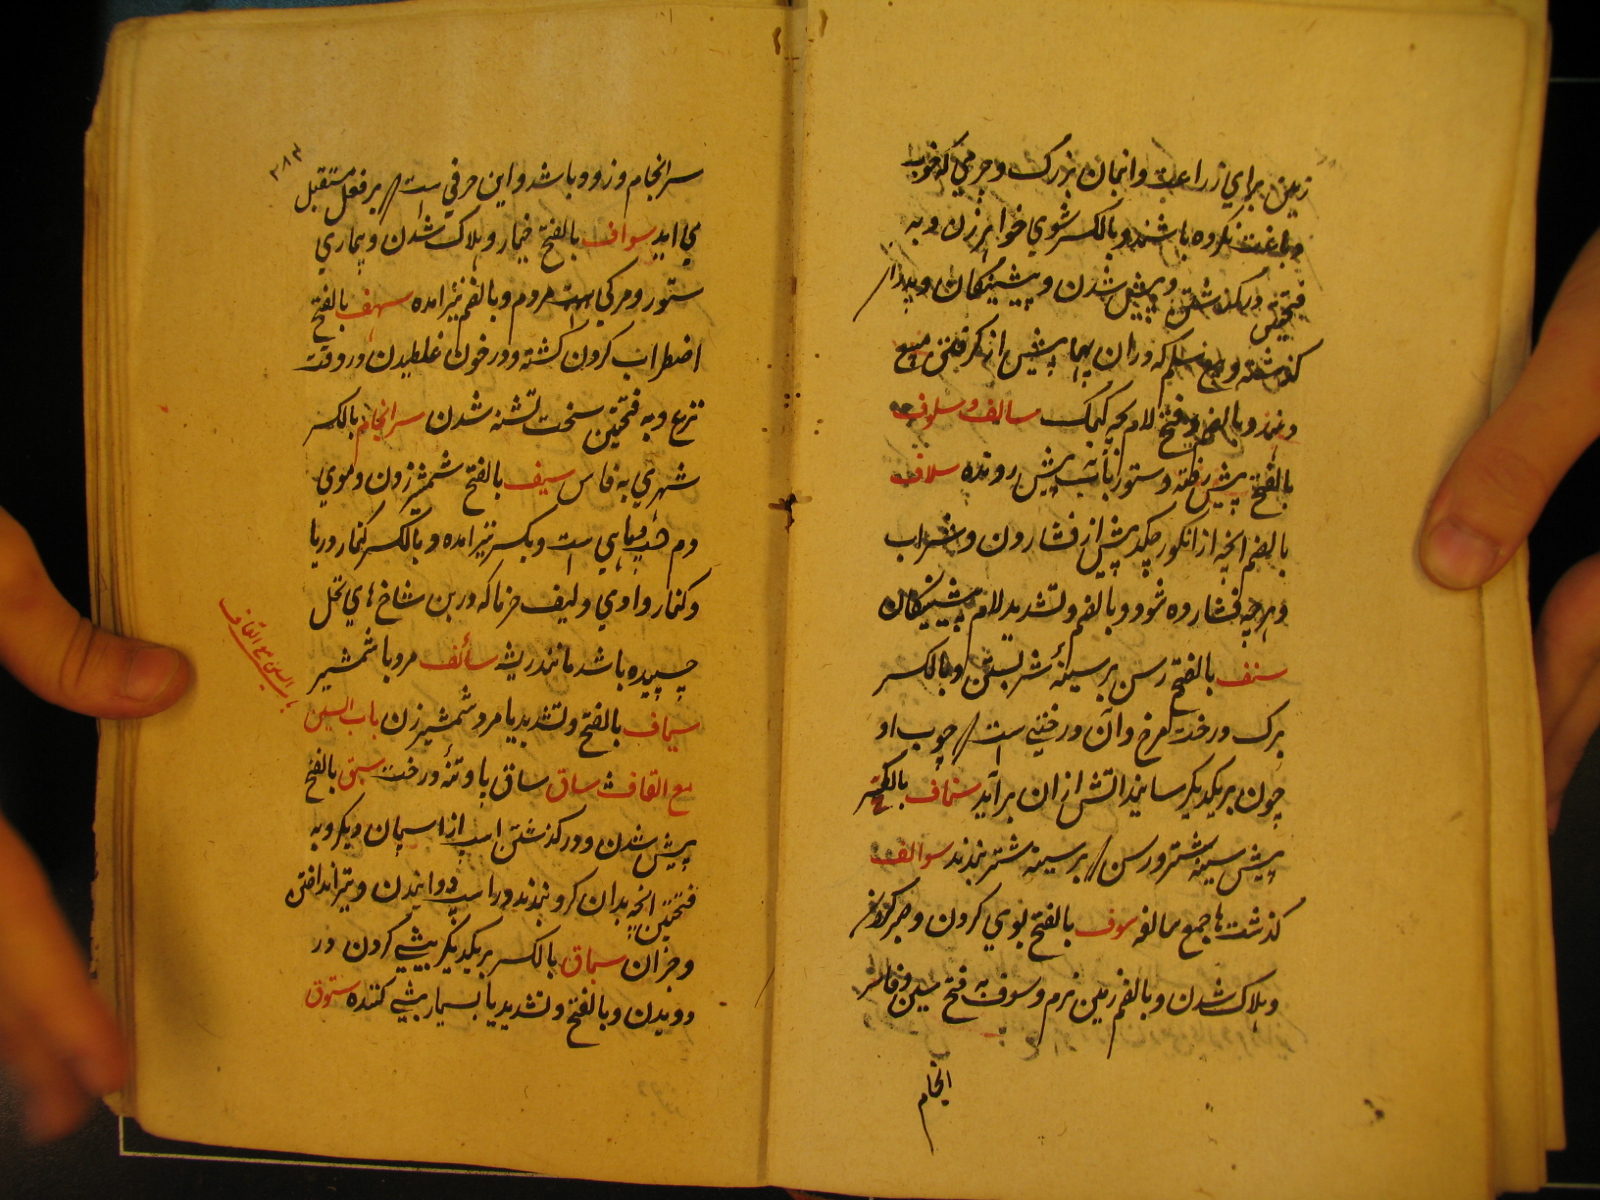 زمین برای زراعت و انبان بزرک و چرمی که خوب
دباغت نکرده باشند و بالکسر شوی خواهر زن و به
فتحتین درکذشتن و پیش شدن و پیشینکان و پدر
کذشته و بیع سلم که دران بها پیش از کرفتن مبیع
دهند و بالضم و فتح لام چه کبک سالف و سلوف
بالفتح پیش رفته و ستور باب پیش رونده سلاف
بالضم انچه از انکور چکد پیش از فشاردن و شراب
و هرچه فشارده شود و بالضم و تشدید لام پیشینکان
سنف بالفتح رسن بر سینه شتر بستن و بالکسر
برک درخت مرخ و آن درختی ست چوب او
چون بر یکدیکر سایند اتش ازان برآید سناف بالکسر
پیش سینه شتر و رسن بر سینه شتر بندند سوالف
کذشت ها جمع سالفه سوف بالفتح بوی کردن و صبر کردن
و هلاک شدن و بالضم زمین نرم و سوف به فتح سین و فا سر
انجام
۲۸۳
سرانجام و زود باشد و این حرفی ست بر فعل مستقبل
می اید سواف بالفتح خیار و هلاک شدن و بیماری
ستور و مرکی مردم و بالضم نیز امده سهف بالفتح
اضطراب کردن کشته و در خون غلطیدن در وقت
نزع و به فتحتین سخت تشنه شدن سرانجام بالکسر
شهری به فارس سیف بالفتح شمشیر زدن و موی
دم ماهی ست و بکسر نیز امده و بالکسر کنار دریا
و کنار وادی و لیف خرما که در بن شاخ های نخل
چسپیده باشد مانند ریشه سائف مرد با شمشیر
سیاف بالفتح و تشدید یا مرد شمشیر زن باب السین
مع القاف ساق ساق پا و تنه درخت سبق بالفتح
پیش شدن و درکذشتن اسپ از اسپان دیکر و به
فتحتین انچه بدان کرو بندند در اسپ دوانیدن و تیر انداختن
و جزان سباق بالکسر بر یکدیکر پیشی کردن در
دویدن و بالفتح و تشدید با بسیار پیشی کننده ستوق
باب السین مع القاف